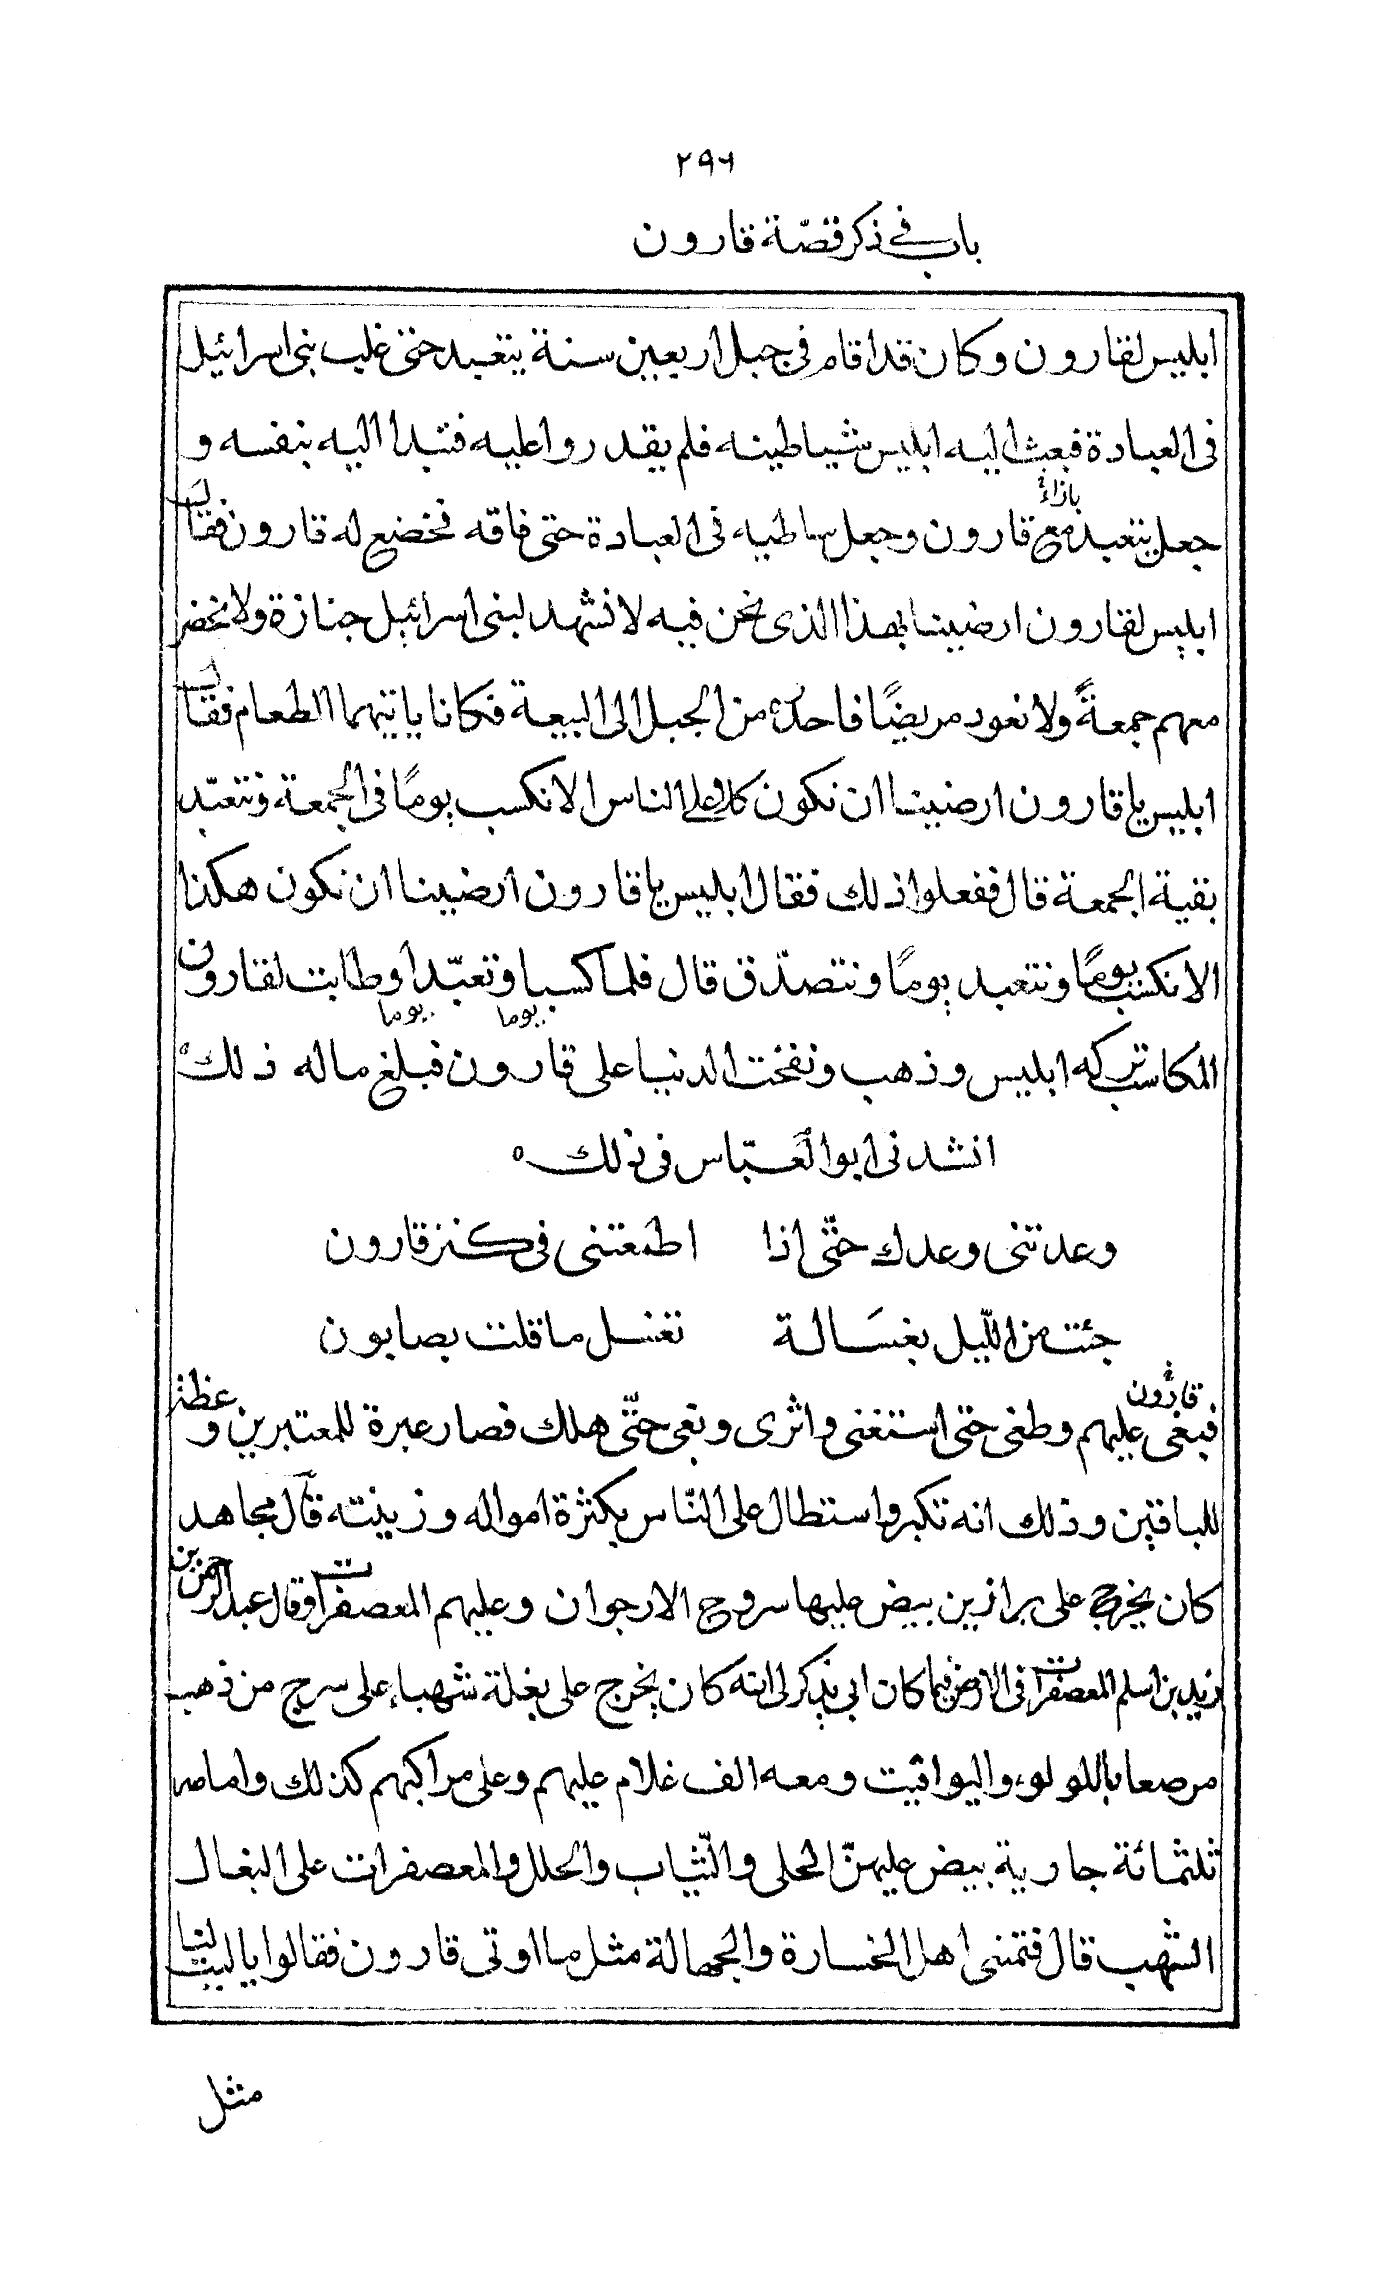 ٢٩٦
باب في ذكر قصّة قارون
ابليس لقارون وكان قد اقام فى جبل اربعين سنة يتعبد حتى غلب بنى اسرائيل
فى العبادة فبعث اليه ابليس شياطينه فلم يقدروا عليه فتبدا اليه بنفسه و
بازاء
جعل يتعبد مع قارون وجعل فى العبادة حتى فاقه فخضع له قارون فقال
ابليس لقارون ارضينا بهذا الذى نحن فيه لا نشهد لبنى اسرائيل جنازة ولا نحضر
معهم جمعةً ولا نعود مريضًا فاحدره من الجبل الى البيعة فكانا ياتيهما الطعام فقال
ابليس يا قارون ارضينا ان نكون كلا على الناس الا نكسب يومًا فى الجمعة ونتعبّد
بقية الجمعة قال ففعلوا ذلك فقال ابليس يا قارون ارضينا ان نكون هكذا
الا نكسب يومًا ونتعبد يومًا ونتصدّق قال فلما كسبا وتعبّدا وطابت لقارون
يوما يوما
المكاسب تركه ابليس وذهب ونفخت الدنيا على قارون فبلغ ماله ذلك ه
انشدنى ابو العبّاس فى ذلك ه
وعدتنى وعدك حتّى اذا اطمعتنى فى كنز قارون
جئت من اللّيل بغسَالة تغسل ما قلت بصابون
قارون
فبغى عليهم وطغى حتى استغنى واثرى وبغى حتّى هلك فصار عبرة للمعتبرين وعظة
للباقين وذلك انه تكبر واستطال على النّاس بكثرة امواله وزينته قال مجاهد
كان يخرج على برازين بيض عليها سروج الارجوان وعليهم المعصفرات وقال عبد الرحمن بن
زيد بن اسلم المعصفرات فى الارض فيما كان ابى يذكر لى انه كان يخرج على بغلة شهباء على سرج من ذهب
مرصعا باللولوء واليواقيت ومعه الف غلام عليهم وعلى مراكبهم كذلك وامامه
ثلثمائة جارية بيض عليهنّ الحلى والثّياب والحلل والمعصفرات على البغال
الشهب قال فتمنى اهل الخسارة والجهالة مثل ما اوتى قارون فقالوا يا ليت لنا
مثل